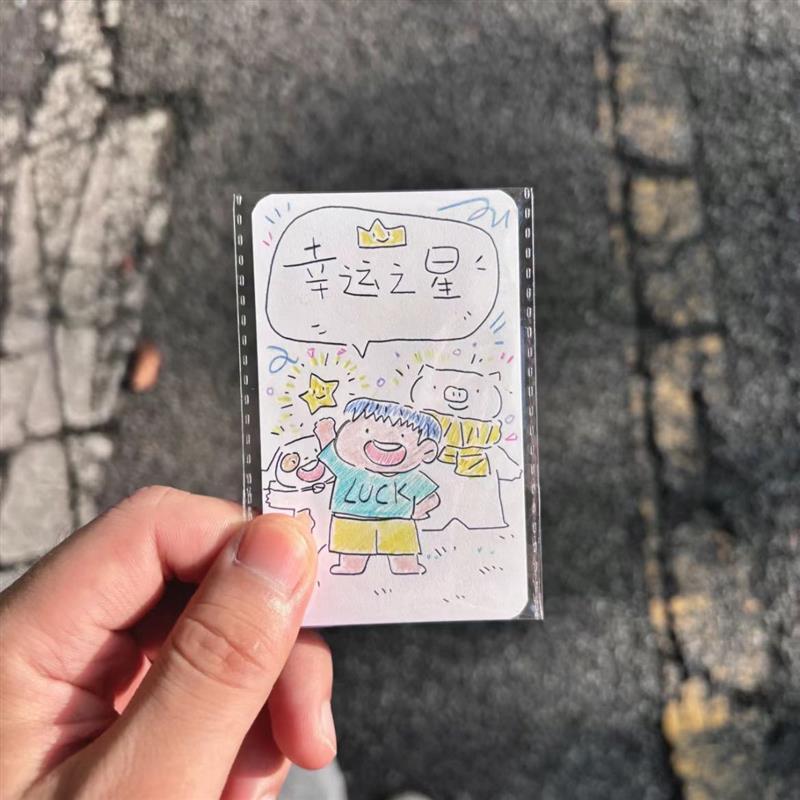 幸运之星
LUCK